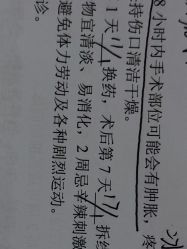 8 小时内手术部位可能会有肿胀，疼
持伤口清洁干燥。
1 天 11/4 换药，术后第 7 天 17/4 拆线
物宜清淡、易消化，2 周忌辛辣刺激
避免体力劳动及各种剧烈运动。
诊。